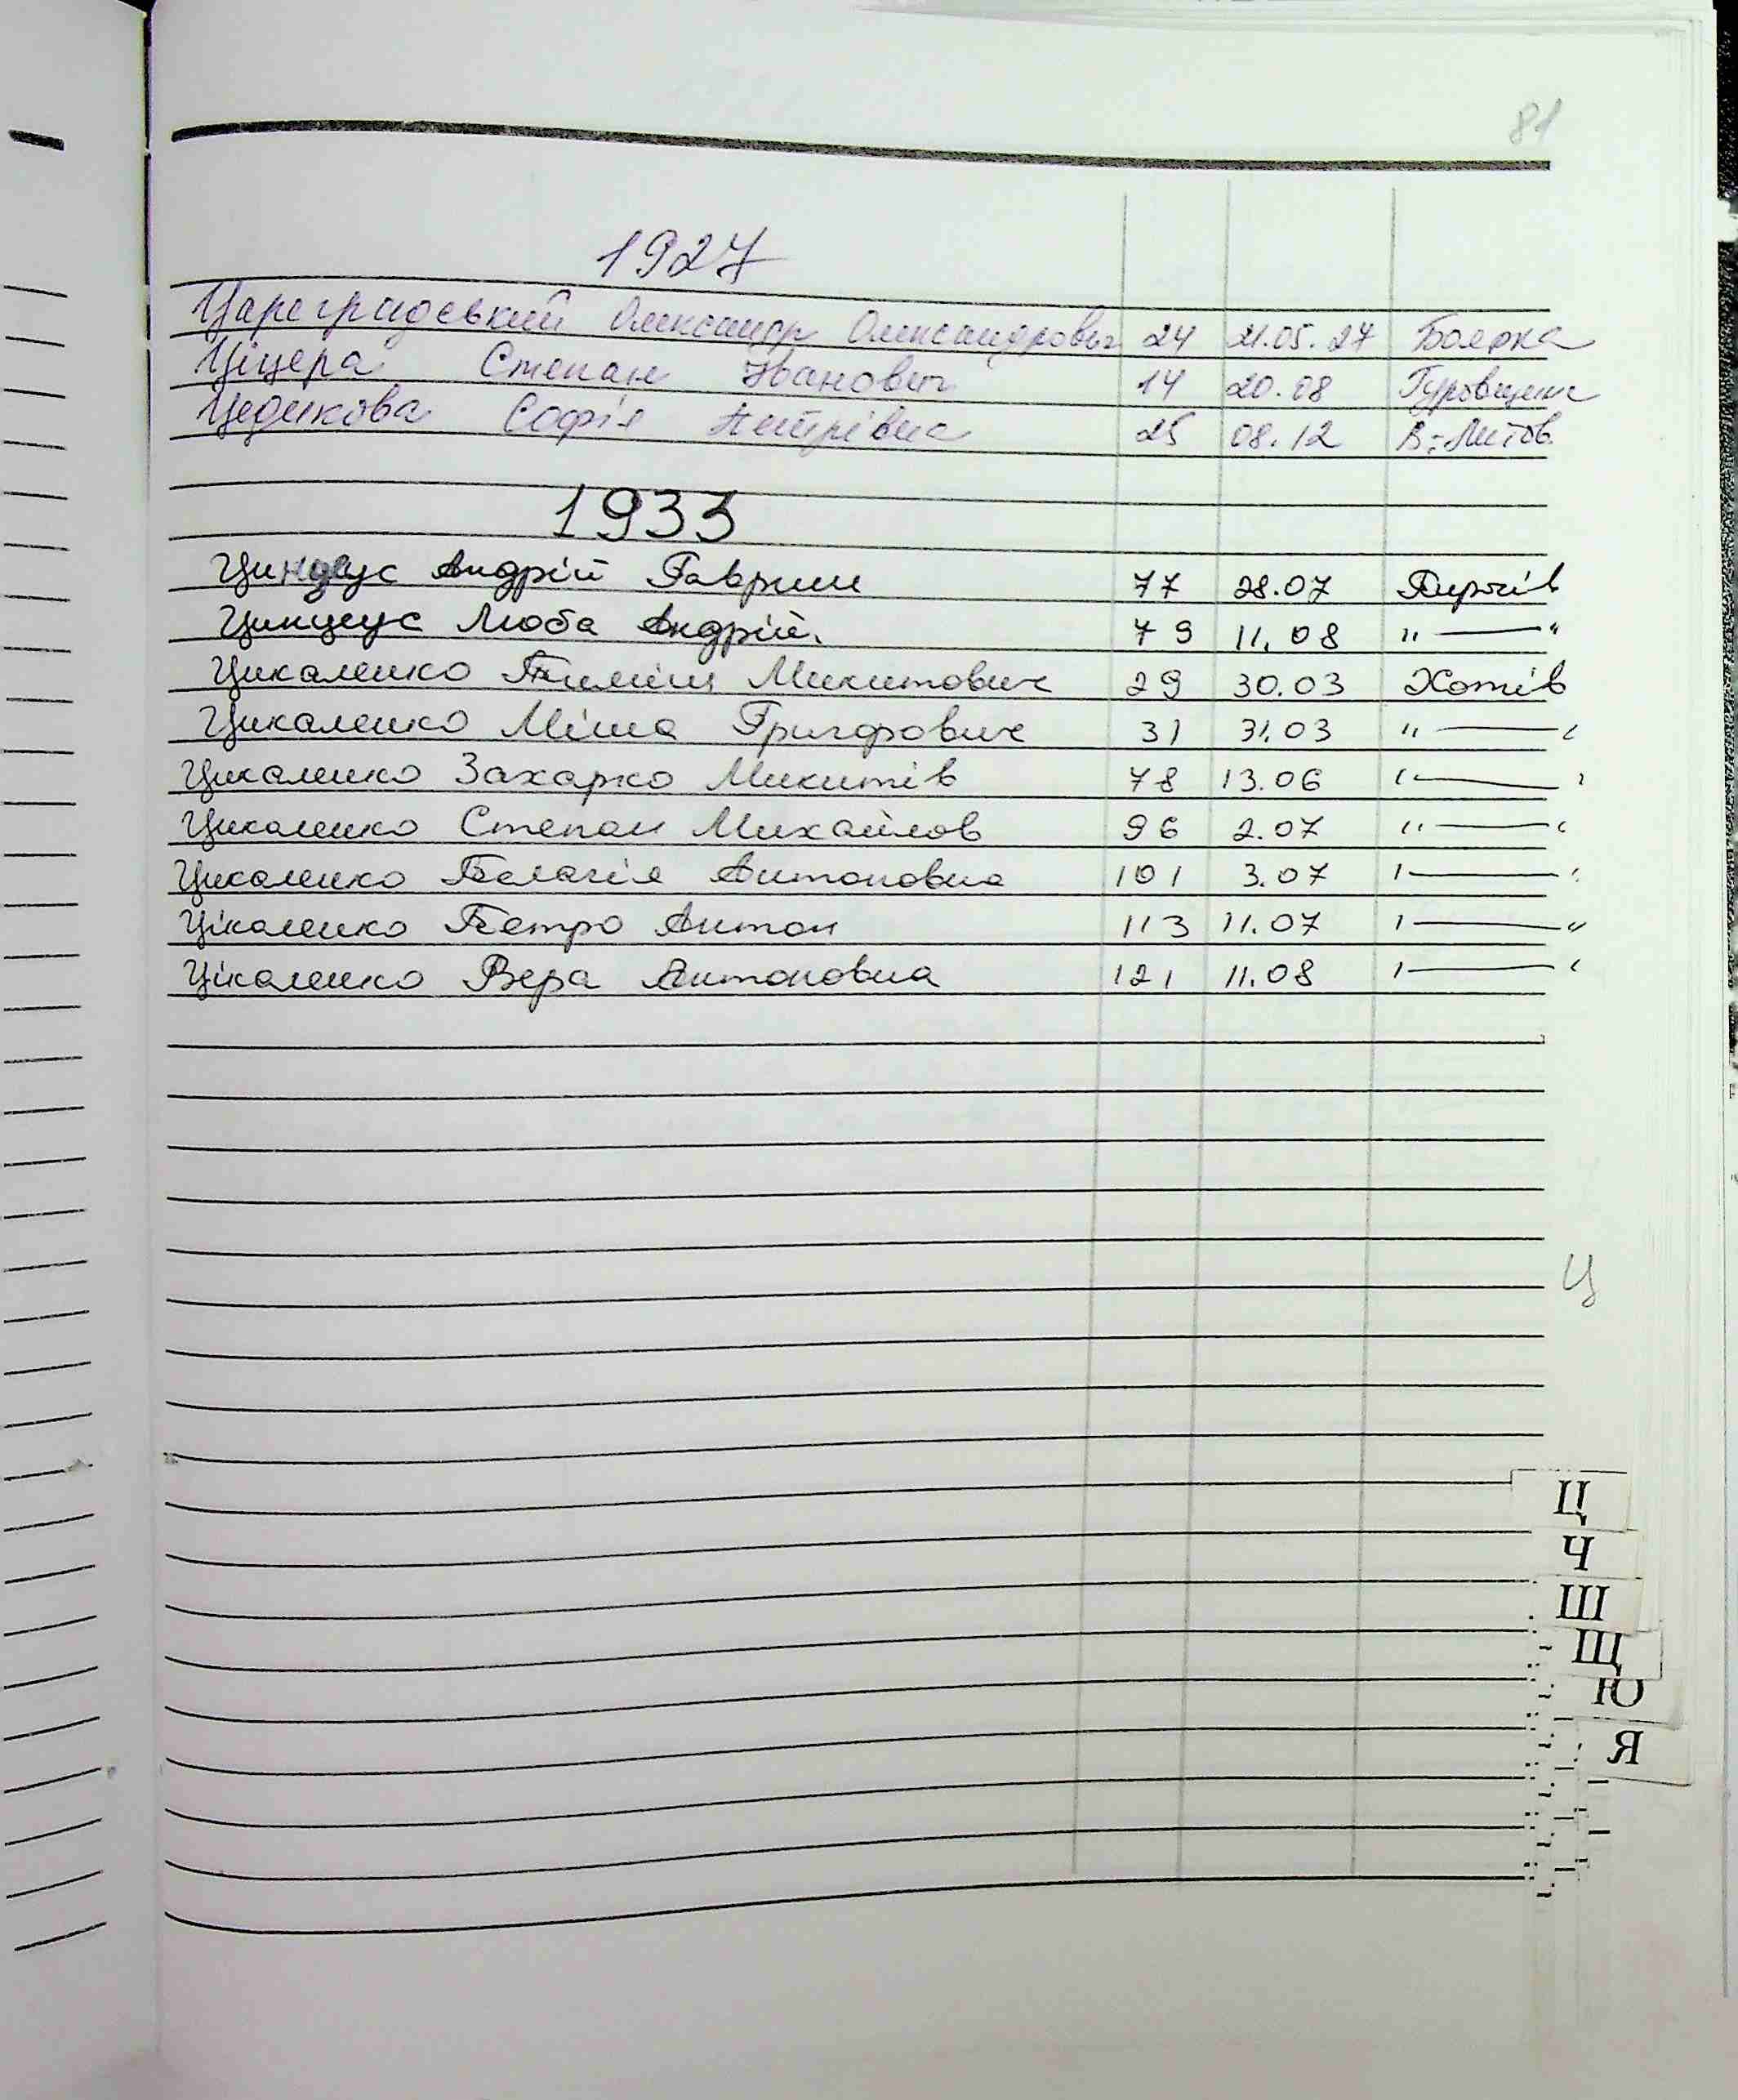 81
1927
Цареградський Олександр Олександрович 24 21.05.27 Боярка
Ціцера Степан Іванович 14 20.08 Гуровщина
Цедикова Софія Петрівна 25 08.12 В-Литов.
1933
Андрій Гаврил 77 28.07
Цинцеус Люба Андрій. 79 11.08 " — "
Цикаленко Микитович 29 30.03 Хотів
Цикаленко Міша Григорович 31 31.03 " — "
Цикаленко Захарко Микитів 78 13.06 " — "
Цикаленко Степан Михайлов 96 2.07 " — "
Цикаленко Пелагія Антоновна 101 3.07 " — "
Цікаленко Петро Антон 113 11.07 " — "
Цікаленко Вера Антоновна 121 11.08 " — "
Ц
Ц
Ч
Ш
Щ
Ю
Я